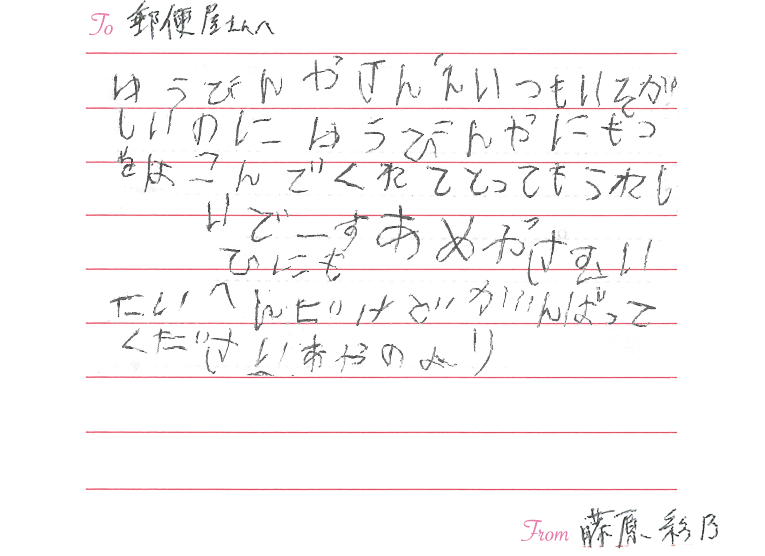 To 郵便屋さんへ
ゆうびんやさんえいつもいそが
しいのにゆうびんやにもつ
をはこんでくれてとってもうれし
いでーすあめやさむい
ひにも
たいへんだけどがんばって
くださいあやのより
From 藤原 彩乃